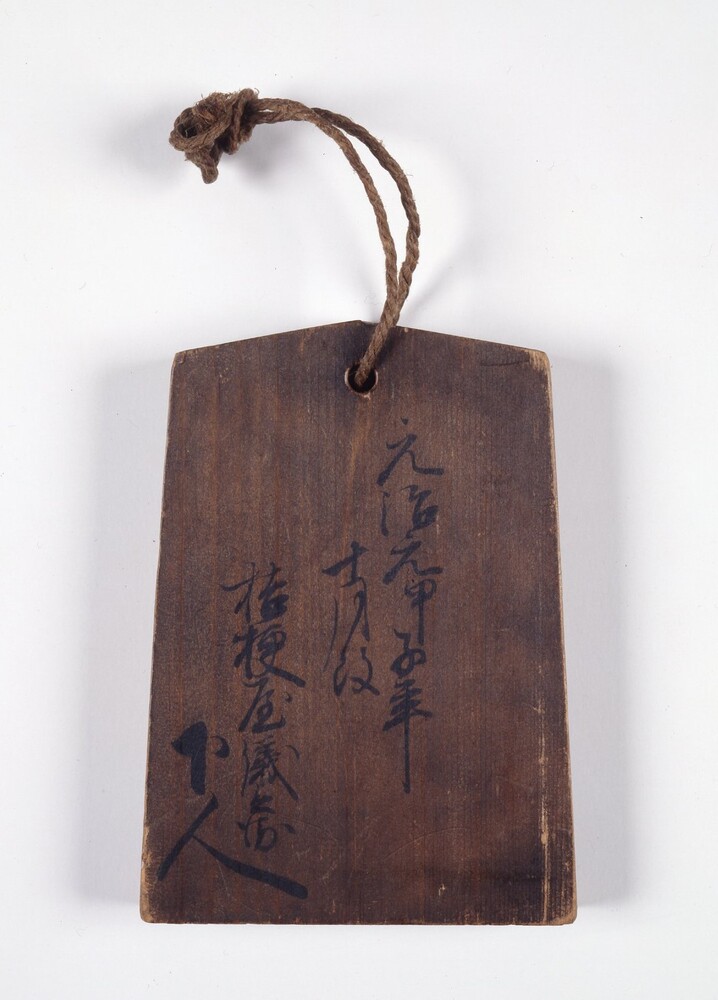 元治元甲子年
十月改
桔梗屋儀兵衛
下人